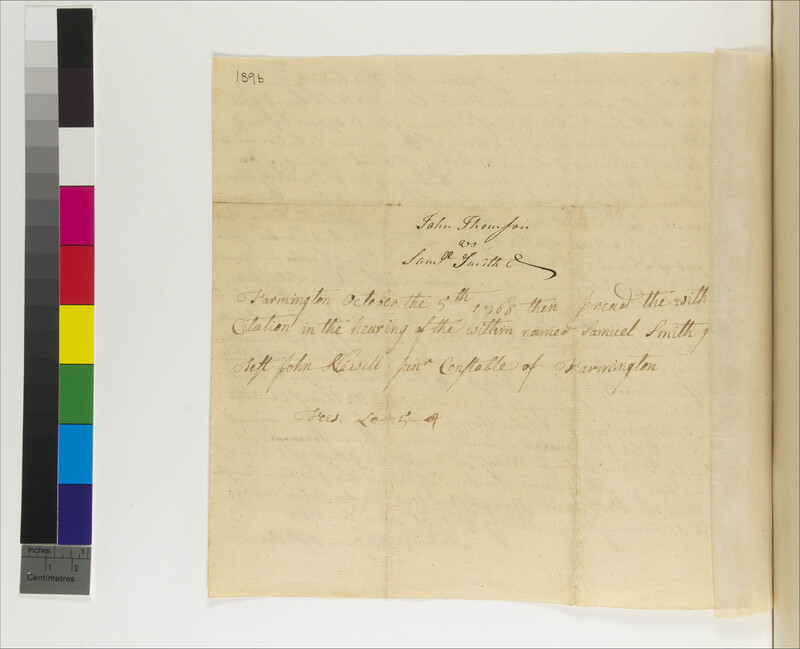 189b
John Thomson
vs
Samll Smith
Farmington October the 5th 1768 then I read the with
Citation in the hearing of the within named Samuel Smith
Test John Newell Junr Constable of Farmington
Fees. £0-5-4
Inches 1
1 2
Centimetres